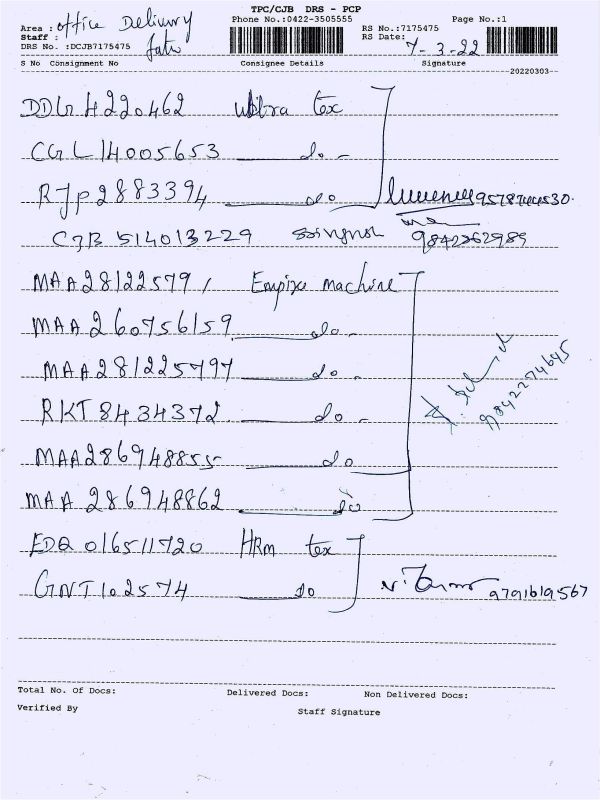 TPC/CJB DRS - PCP
Phone No.:0422-3505555
Page No.:1
Area : office Delivery
Staff :
DRS No. :DCJB7175475
RS No.:7175475
RS Date: 7-3-22
S No Consignment No Consignee Details Signature
20220303
DDG4220462 Ultra tex
CGL14005653 do -
RJP2883394 do 9578744530
CJB 514013229 9842262989
MAA28122579 Empire machine
MAA260756159 do -
MAA281225797 do -
RKT8434372 do -
9842274645
MAA286948855 do
MAA 286948862 do
EDQ 016511720 HRM tex
GNT102574 do 9791619567
Total No. Of Docs: Delivered Docs: Non Delivered Docs:
Verified By Staff Signature